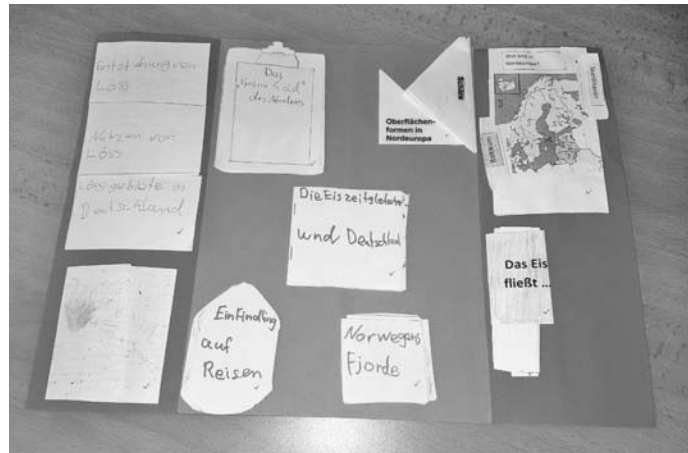 Entstehung von
Löss
Nutzen von
Löss
Lössgebiete in
Deutschland
Das
"Grüne Gold"
des Nordens
Oberflächen-
formen in
Nordeuropa
Nordeuropa?
Die Eiszeitgletscher
und Deutschland
Das Eis
fließt ...
Ein Findling
auf
Reisen
Norwegens
Fjorde